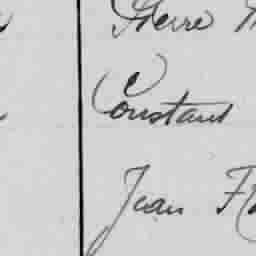 Pierre
Constant
Jean